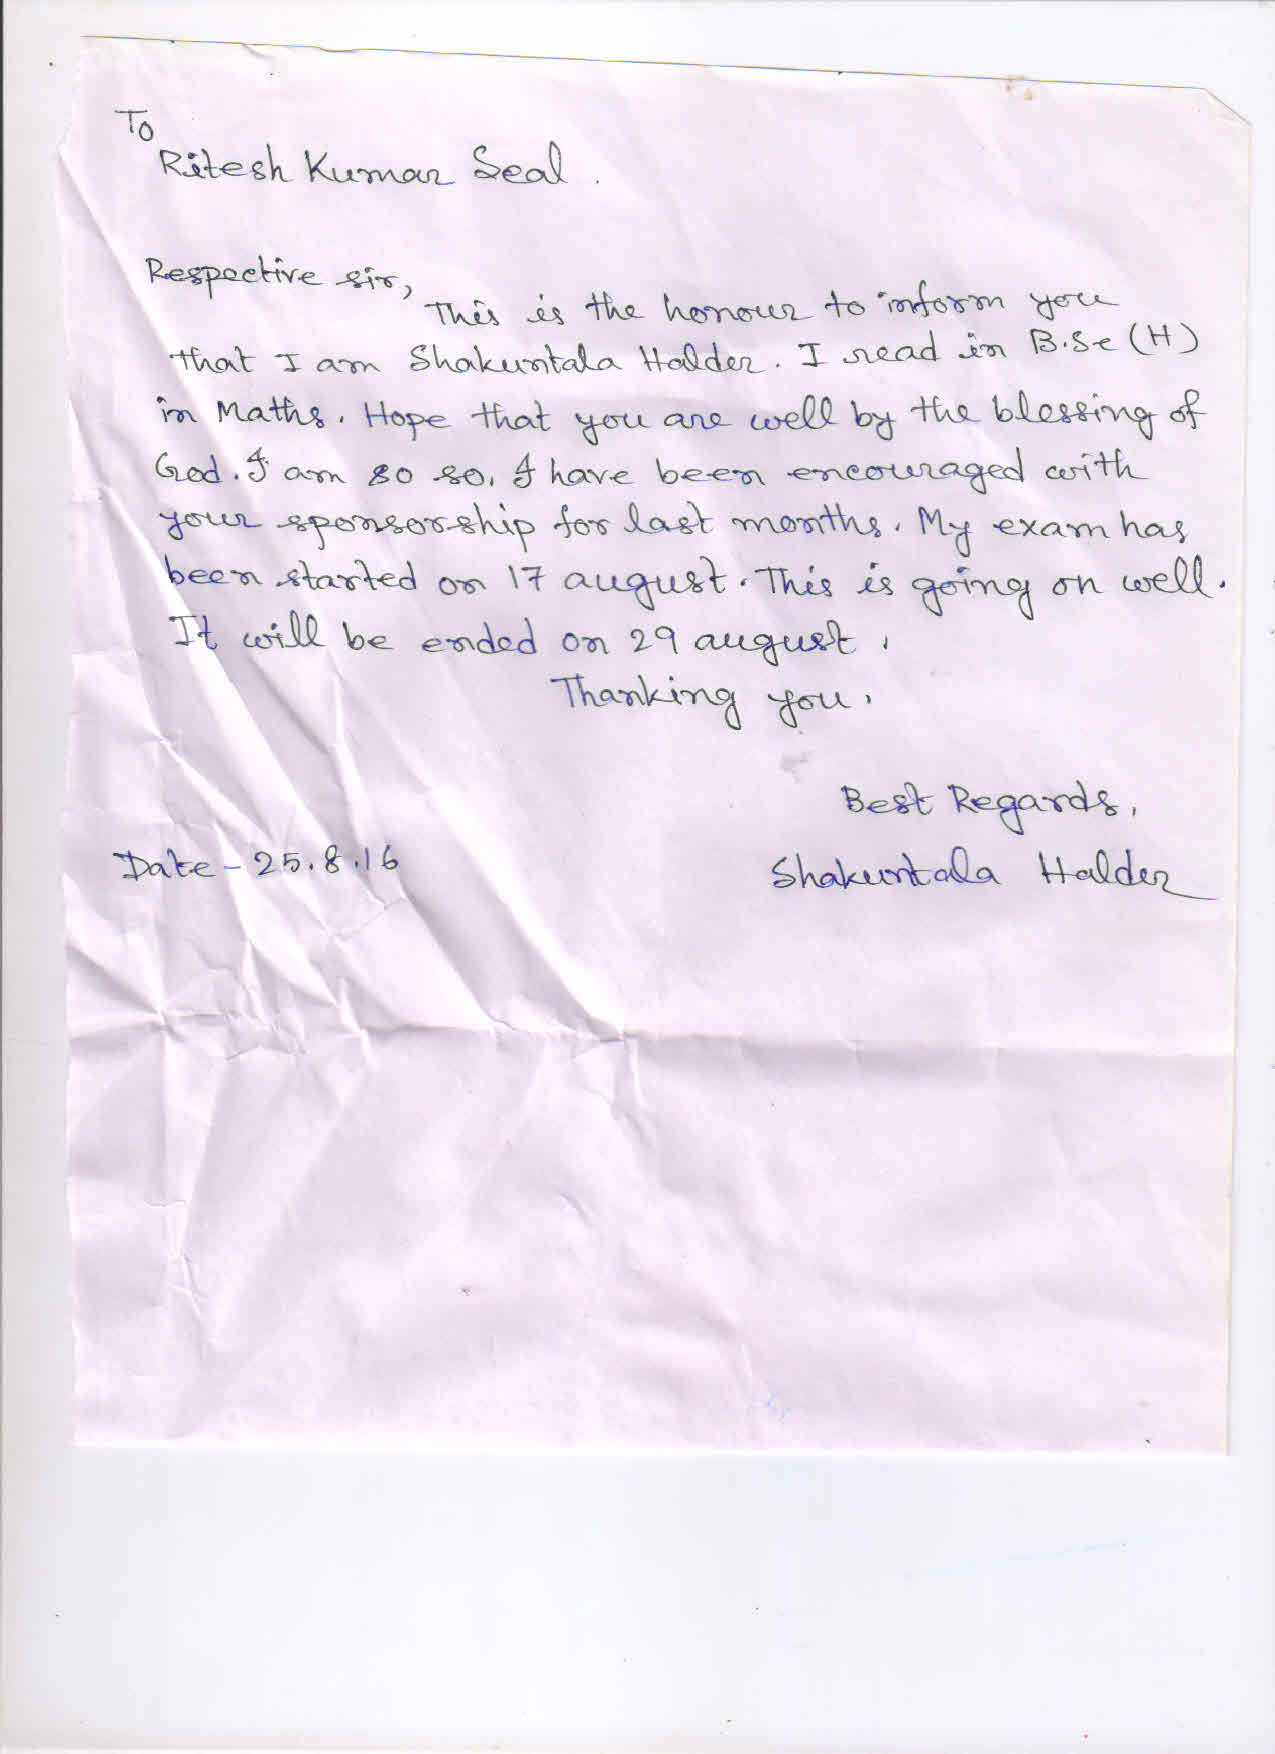 To
Ritesh Kumar Seal.
Respective sir,
This is the honour to inform you
that I am Shakuntala Halder. I read in B.Sc (H)
in Maths. Hope that you are well by the blessing of
God. I am so so. I have been encouraged with
your sponsorship for last months. My exam has
been started on 17 august. This is going on well.
It will be ended on 29 august.
Thanking you.
Best Regards,
Date - 25.8.16
Shakuntala Halder